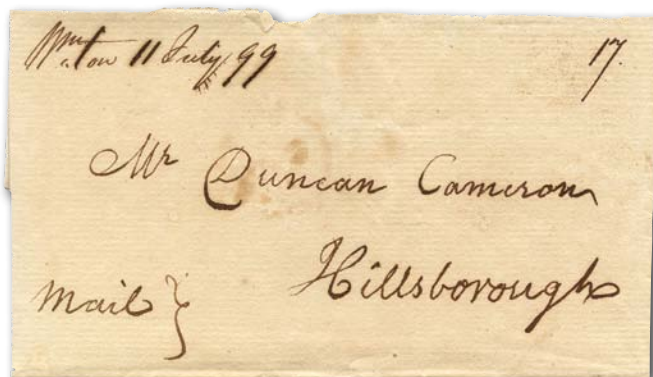 Wmton 11 July 99 17.
Mr Duncan Cameron
Hillsborough
Mail }